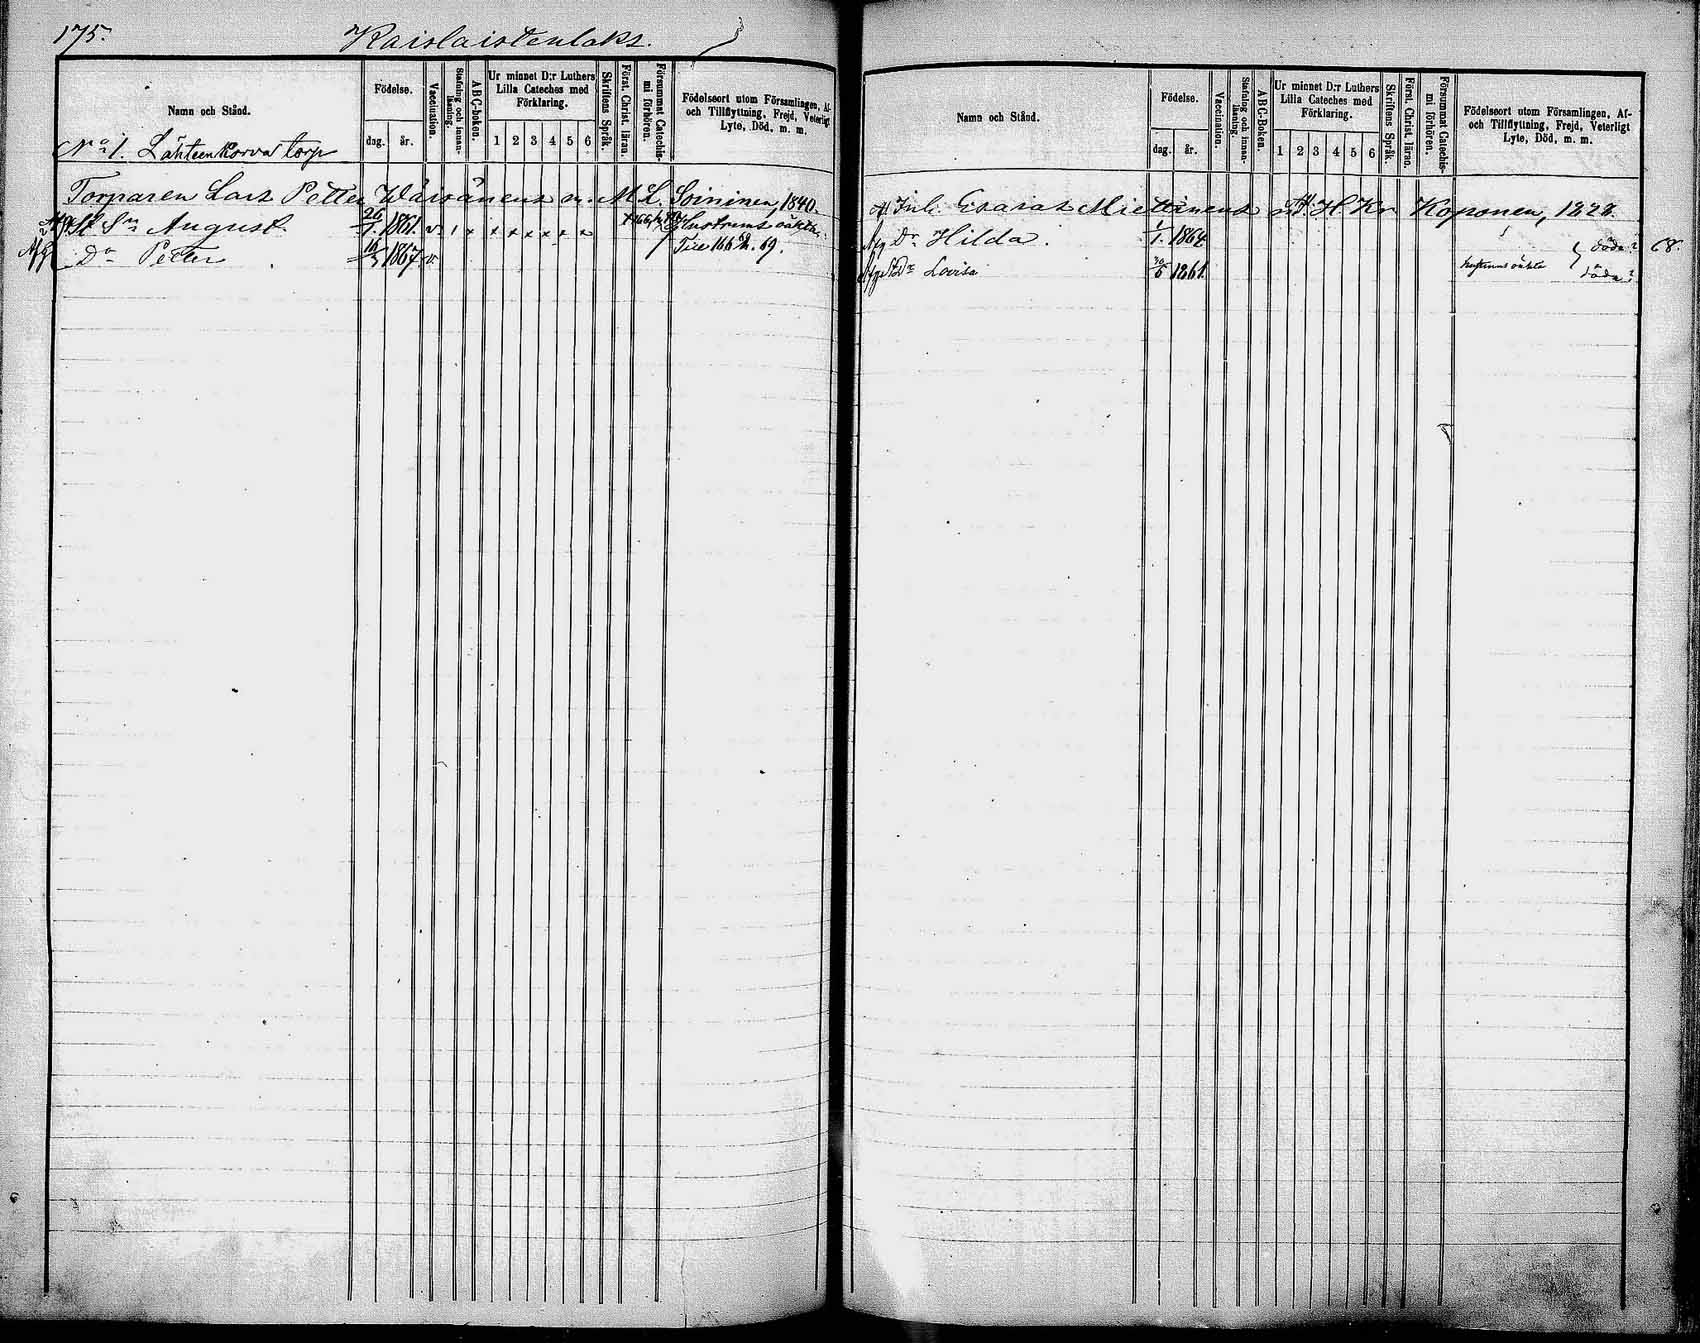 175.
Kaislaistenlaks.
Namn och Stånd.
Födelse.
dag. år.
Vaccination.
Stafning och innanläsning.
A B C-boken.
Ur minnet D:r Luthers Lilla Cateches med Förklaring.
1 2 3 4 5 6
Skriftens Språk.
Först. Christ. läran.
Försummat Catechismi förhören.
Födelseort utom Församlingen, Af- och Tillflyttning, Frejd, Veterligt Lyte, Död, m. m.
No 1. Lähteenkorva torp
Torparen Lars Petter Wäisänens m. M L. Soininen, 1840.
St Sn August. 26/1 1861. v 1 x x x x x x x Hustruns oäkta.
Afg Do Petter 1867. v. 69.
Namn och Stånd.
Födelse.
dag. år.
Vaccination.
Stafning och innanläsning.
A B C-Boken.
Ur minnet D:r Luthers Lilla Cateches med Förklaring.
1 2 3 4 5 6
Skriftens Språk.
Först. Christ. läran.
Försummat Catechismi förhören.
Födelseort utom Församlingen, Af- och Tillflyttning, Frejd, Veterligt Lyte, Död, m. m.
Inh. Esaias Miettinens H Kr Koponen, 1828.
Afg Dr Hilda. 1/1 1864. döda? 68.
Afg Dr Lovisa 1861. Hustruns oäkta döda?